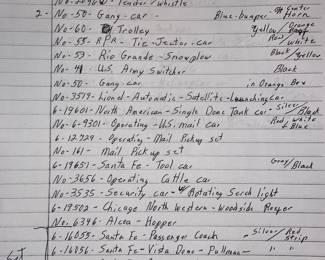 Tender / Whistle
2 - No-50- Gang-car - Blue-bumper. Off Center Horn
No-60- Trolley Yellow / Orange Roof
No-55- Tie-Jector-car Red / white
No-53- Rio Grande-Snowplow Black / Yellow
No-41 U.S. Army Switcher Black
No-50- Gang car in Orange Box
No-3519- Lionel-Automatic-Satellite-Launching car
6-19601- North American-Single Dome Tank Car - Silver / Black
No-6-9301-Operating-U.S. mail car Red / White & Blue
6-12729 - Operating-Mail Pickup set
No-161 - Mail Pickup set
6-19651 - Santa Fe - Tool car Gray / Black
No-3656 - Operating Cattle car
No-3535 - Security car - w/ Rotating Serch light
6-19502 - Chicago North Western - Woodside Reefer
No. 6346 - Alcoa - Hopper
6-16055 - Santa-Fe - Passenger Coach - Silver / Red Strip
6-16056 - Santa-Fe - Vista Dome - Pullman - " "
Set